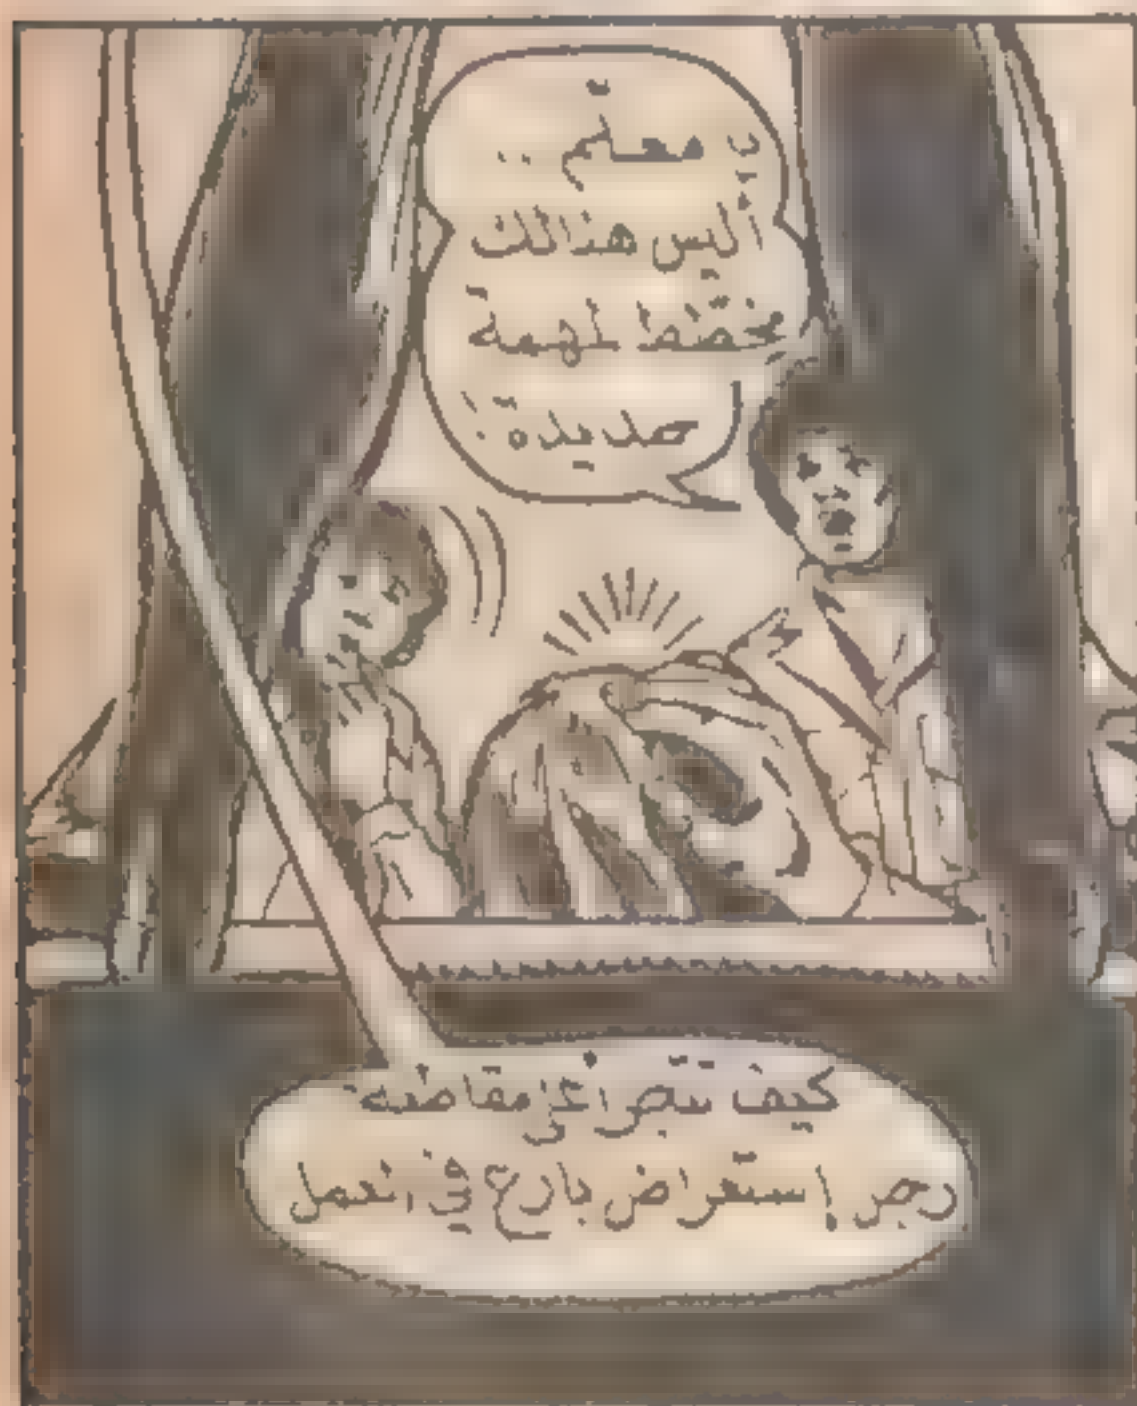 يا معلّم ..
أليس هنالك
مخطّط لمهمة
جديدة؟!
كيف تتجرأ على مقاطعة
رجل إستعراض بارع في العمل